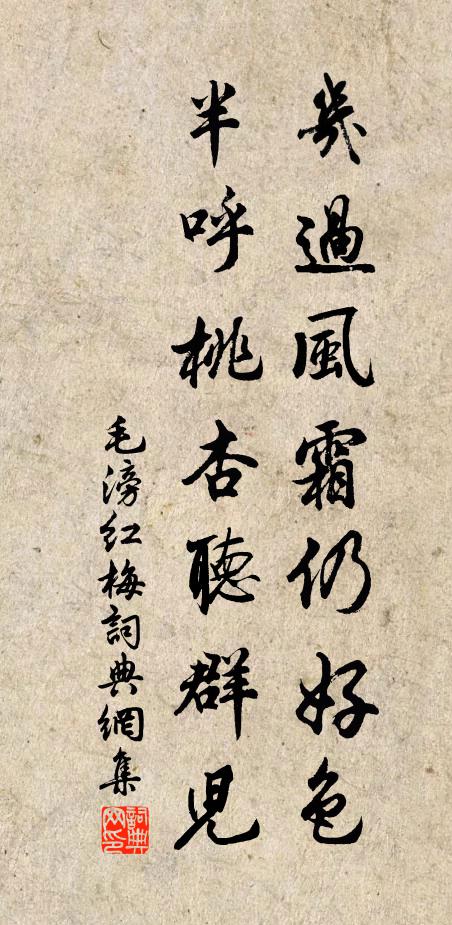 幾過風霜仍好色
半呼桃杏聽群兒
毛滂紅梅詞典網集
詞典網印